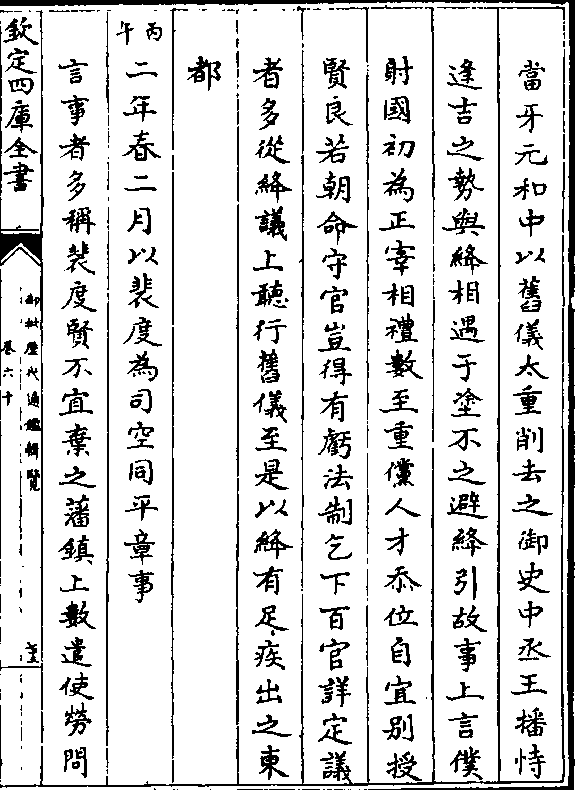 當牙元和中以舊儀太重削去之御史中丞王播恃
逢吉之勢與絳相遇于塗不之避絳引故事上言僕
射國初為正宰相禮數至重儻人才忝位自宜別授
賢良若朝命守官豈得有虧法制乞下百官詳定議
者多從絳議上聽行舊儀至是以絳有足疾出之東
都
丙午
二年春二月以裴度為司空同平章事
言事者多稱裴度賢不宜棄之藩鎮上數遣使勞問
欽定四庫全書
御批歷代通鑑輯覽
卷六十